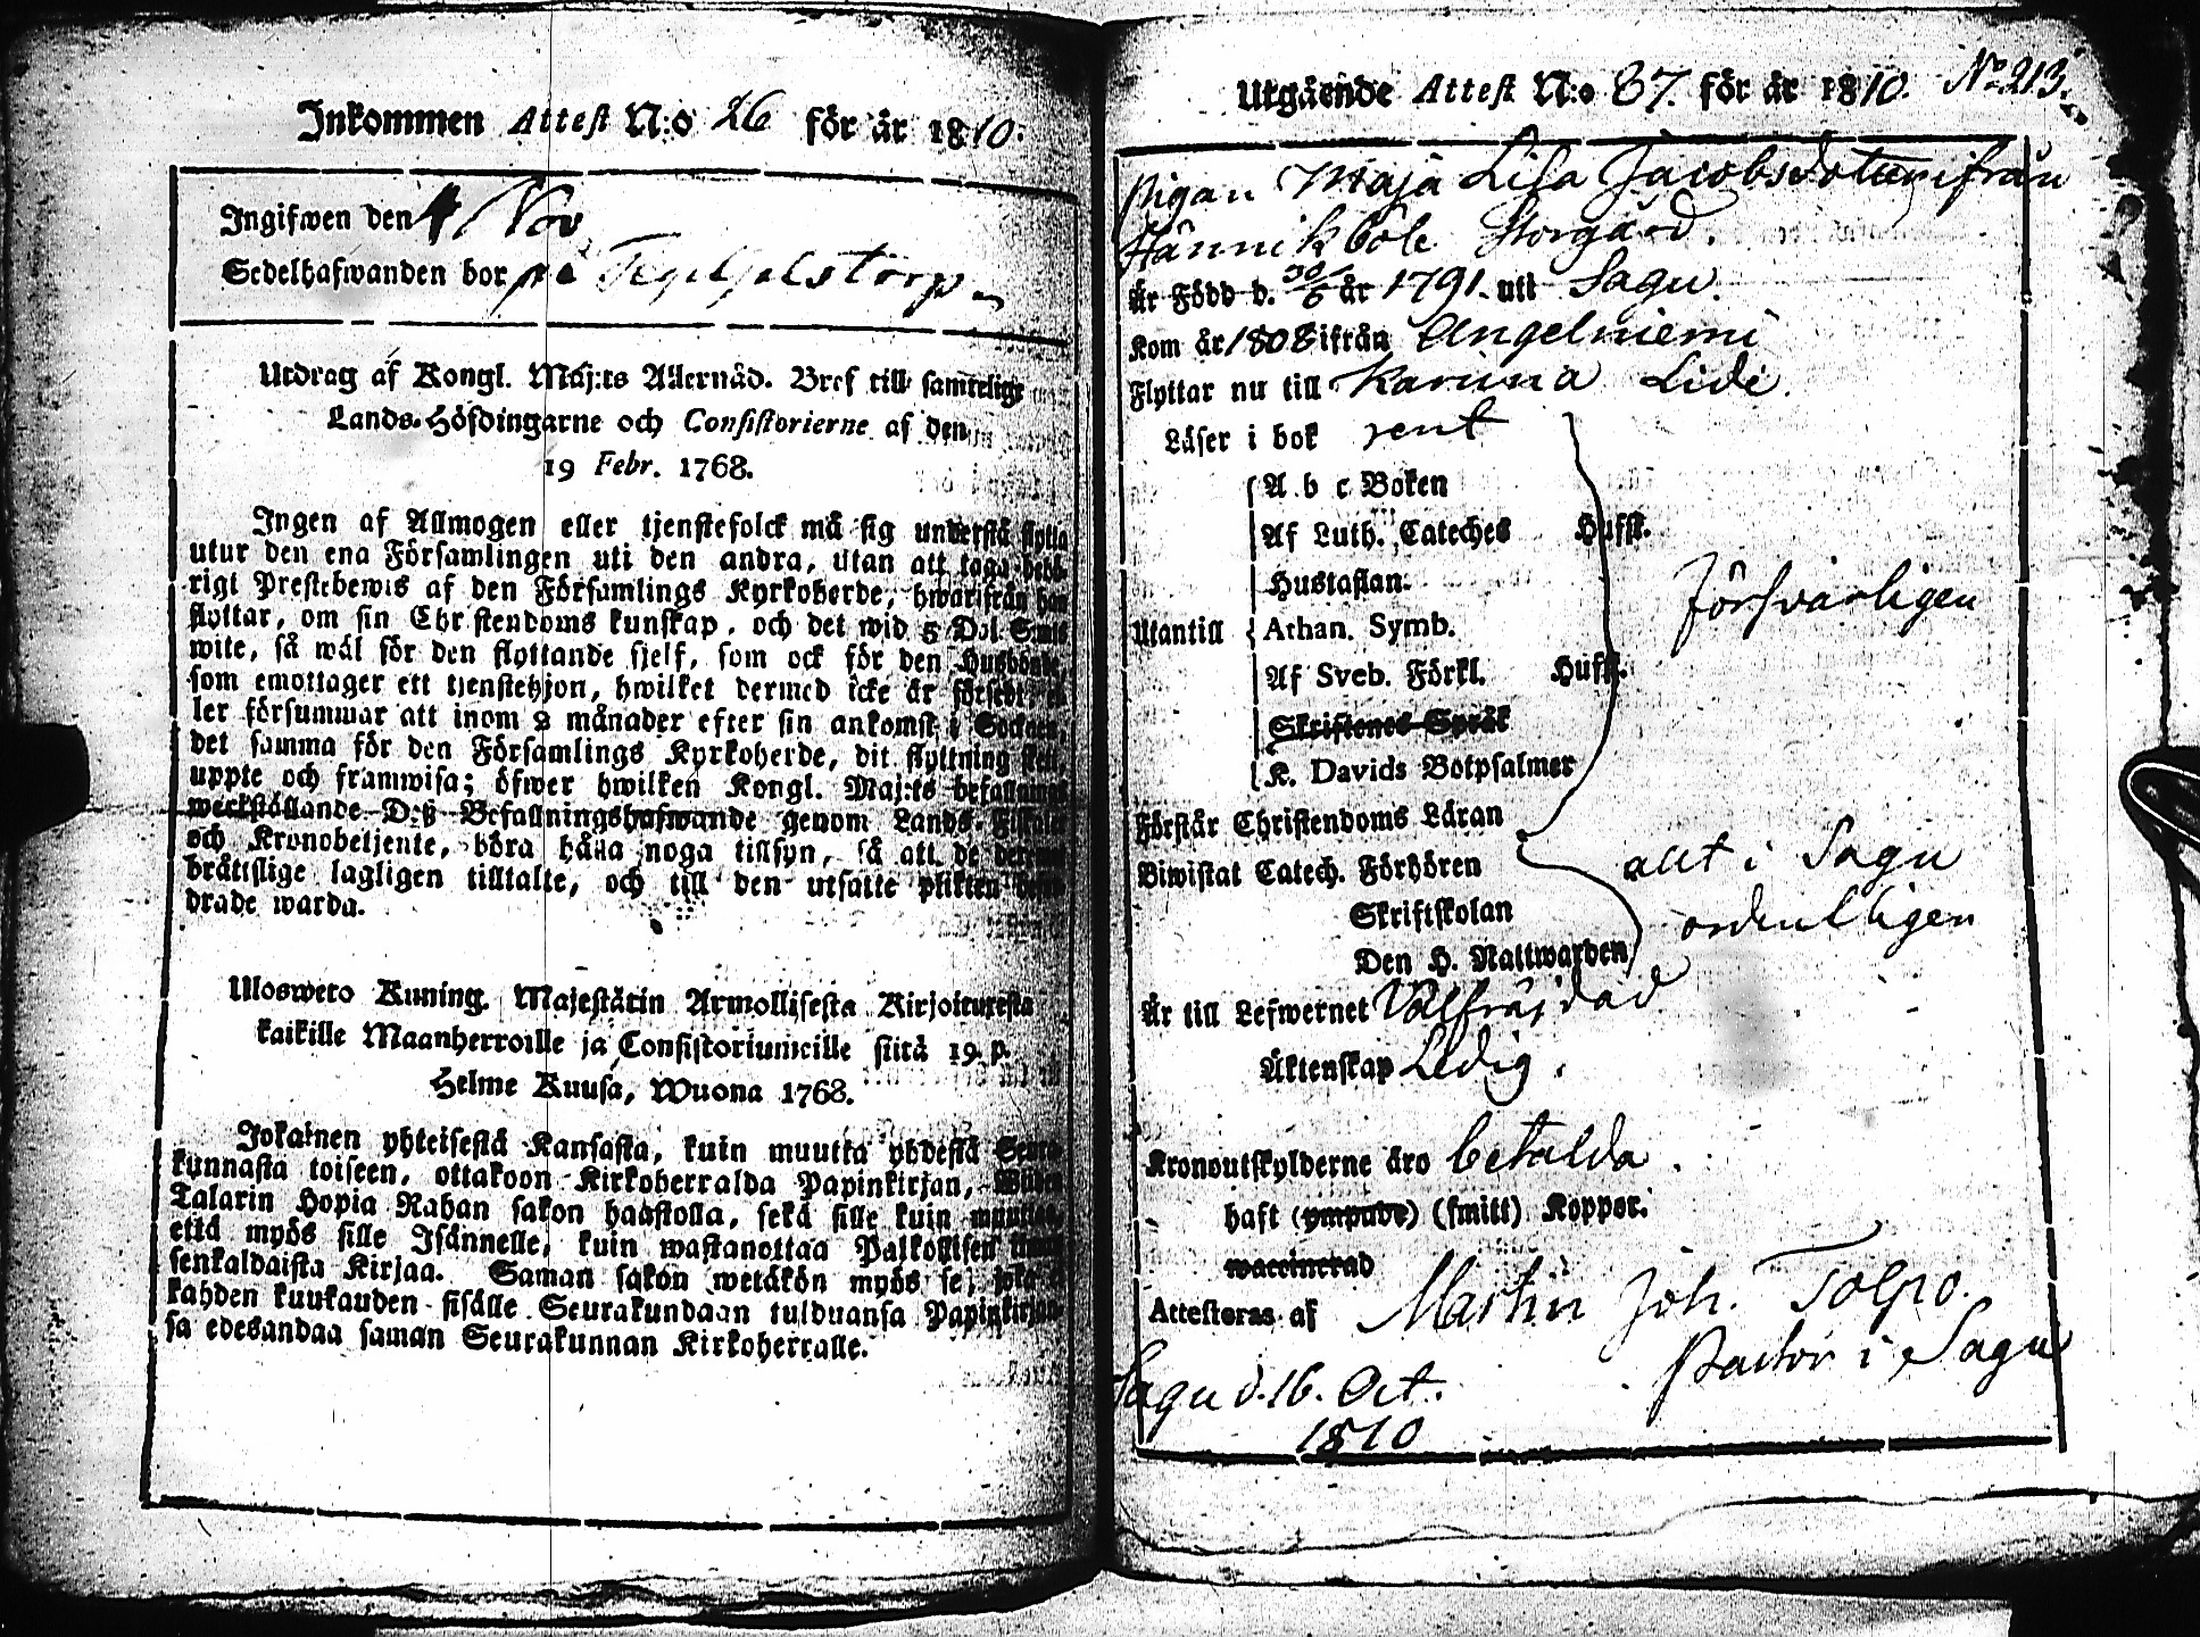 Inkommen Attest N:o 26 för år 1810.
Ingifwen den 4 Nov
Sedelhafwanden bor på
Utdrag af Kongl. Maj:ts Allernåd. Bref till samtelige
Lands-Höfdingarne och Consistorierne af den
19 Febr. 1768.
Ingen af Allmogen eller tjenstefolck må sig understå flytta
utur den ena Församlingen uti den andra, utan att taga behö-
rigt Prestebewis af den Församlings Kyrkoherde, hwarifrån han
flyttar, om sin Christendoms kunskap, och det wid 5 Dal. Smts
wite, så wäl för den flyttande sjelf, som ock för den Husbonde,
som emottager ett tjenstehjon, hwilket dermed icke är försedt el-
ler försummar att inom 2 månader efter sin ankomst i Socknen,
det samma för den Församlings Kyrkoherde, dit flyttning sker,
uppte och framwisa; öfwer hwilken Kongl. Maj:ts befallnings
werkställande Deß Befallningshafwande genom Lands-Fiskaler
och Kronobetjente, böra hålla noga tillsyn, så att de
bråttslige lagligen tilltalte, och till den utsatte plikten
drade warda.
Ulosweto Kuning. Majestätin Armollisesta Kirjoituxesta
kaikille Maanherroille ja Consistoriumeille siitä 19. p.
Helme Kuusa, Wuona 1768.
Jokainen yhteisestä Kansasta, kuin muutta yhdestä Seura-
kunnasta toiseen, ottakoon Kirkoherralda Papinkirjan, Wiiden
Talarin Hopia Rahan sakon haastolla, sekä sille kuin muuttaa,
että myös sille Isännelle, kuin wastanottaa Palkollisen ilman
senkaldaista Kirjaa. Saman sakon wetäkön myös se, joka ei
kahden kuukauden sisälle Seurakundaan tulduansa Papinkirjan-
sa edesandaa saman Seurakunnan Kirkoherralle.
Utgående Attest N:o 87. för år 1810. No 213.
Pigan Maja Lisa Jacobsdotter ifrån
Hännikböle Storgård.
Är Född d. 30/6 år 1791. uti Sagu.
Kom år 1808 ifrån Angelniemi
Flyttar nu till Karuna Lide.
Läser i bok rent
A b c Boken
Af Luth. Cateches Hufst.
Hustaflan.
Utantill Athan. Symb.
Försvarligen
Af Sveb. Förkl. Hufst.
Skriftenes Språk
K. Davids Botpsalmer
Förstår Christendoms Läran
Biwistat Catech. Förhören allt i Sagu
Skriftskolan ordentligen
Den H. Nattwarden
Är till Lefwernet Välfräjdad
Äktenskap Ledig.
Kronoutskylderne äro betalda.
haft (ympade) (smitt) Koppor.
waccinerad
Attesteras af Martin Joh. Tolpo.
Pastor i Sagu
Sagu d. 16. Oct.
1810